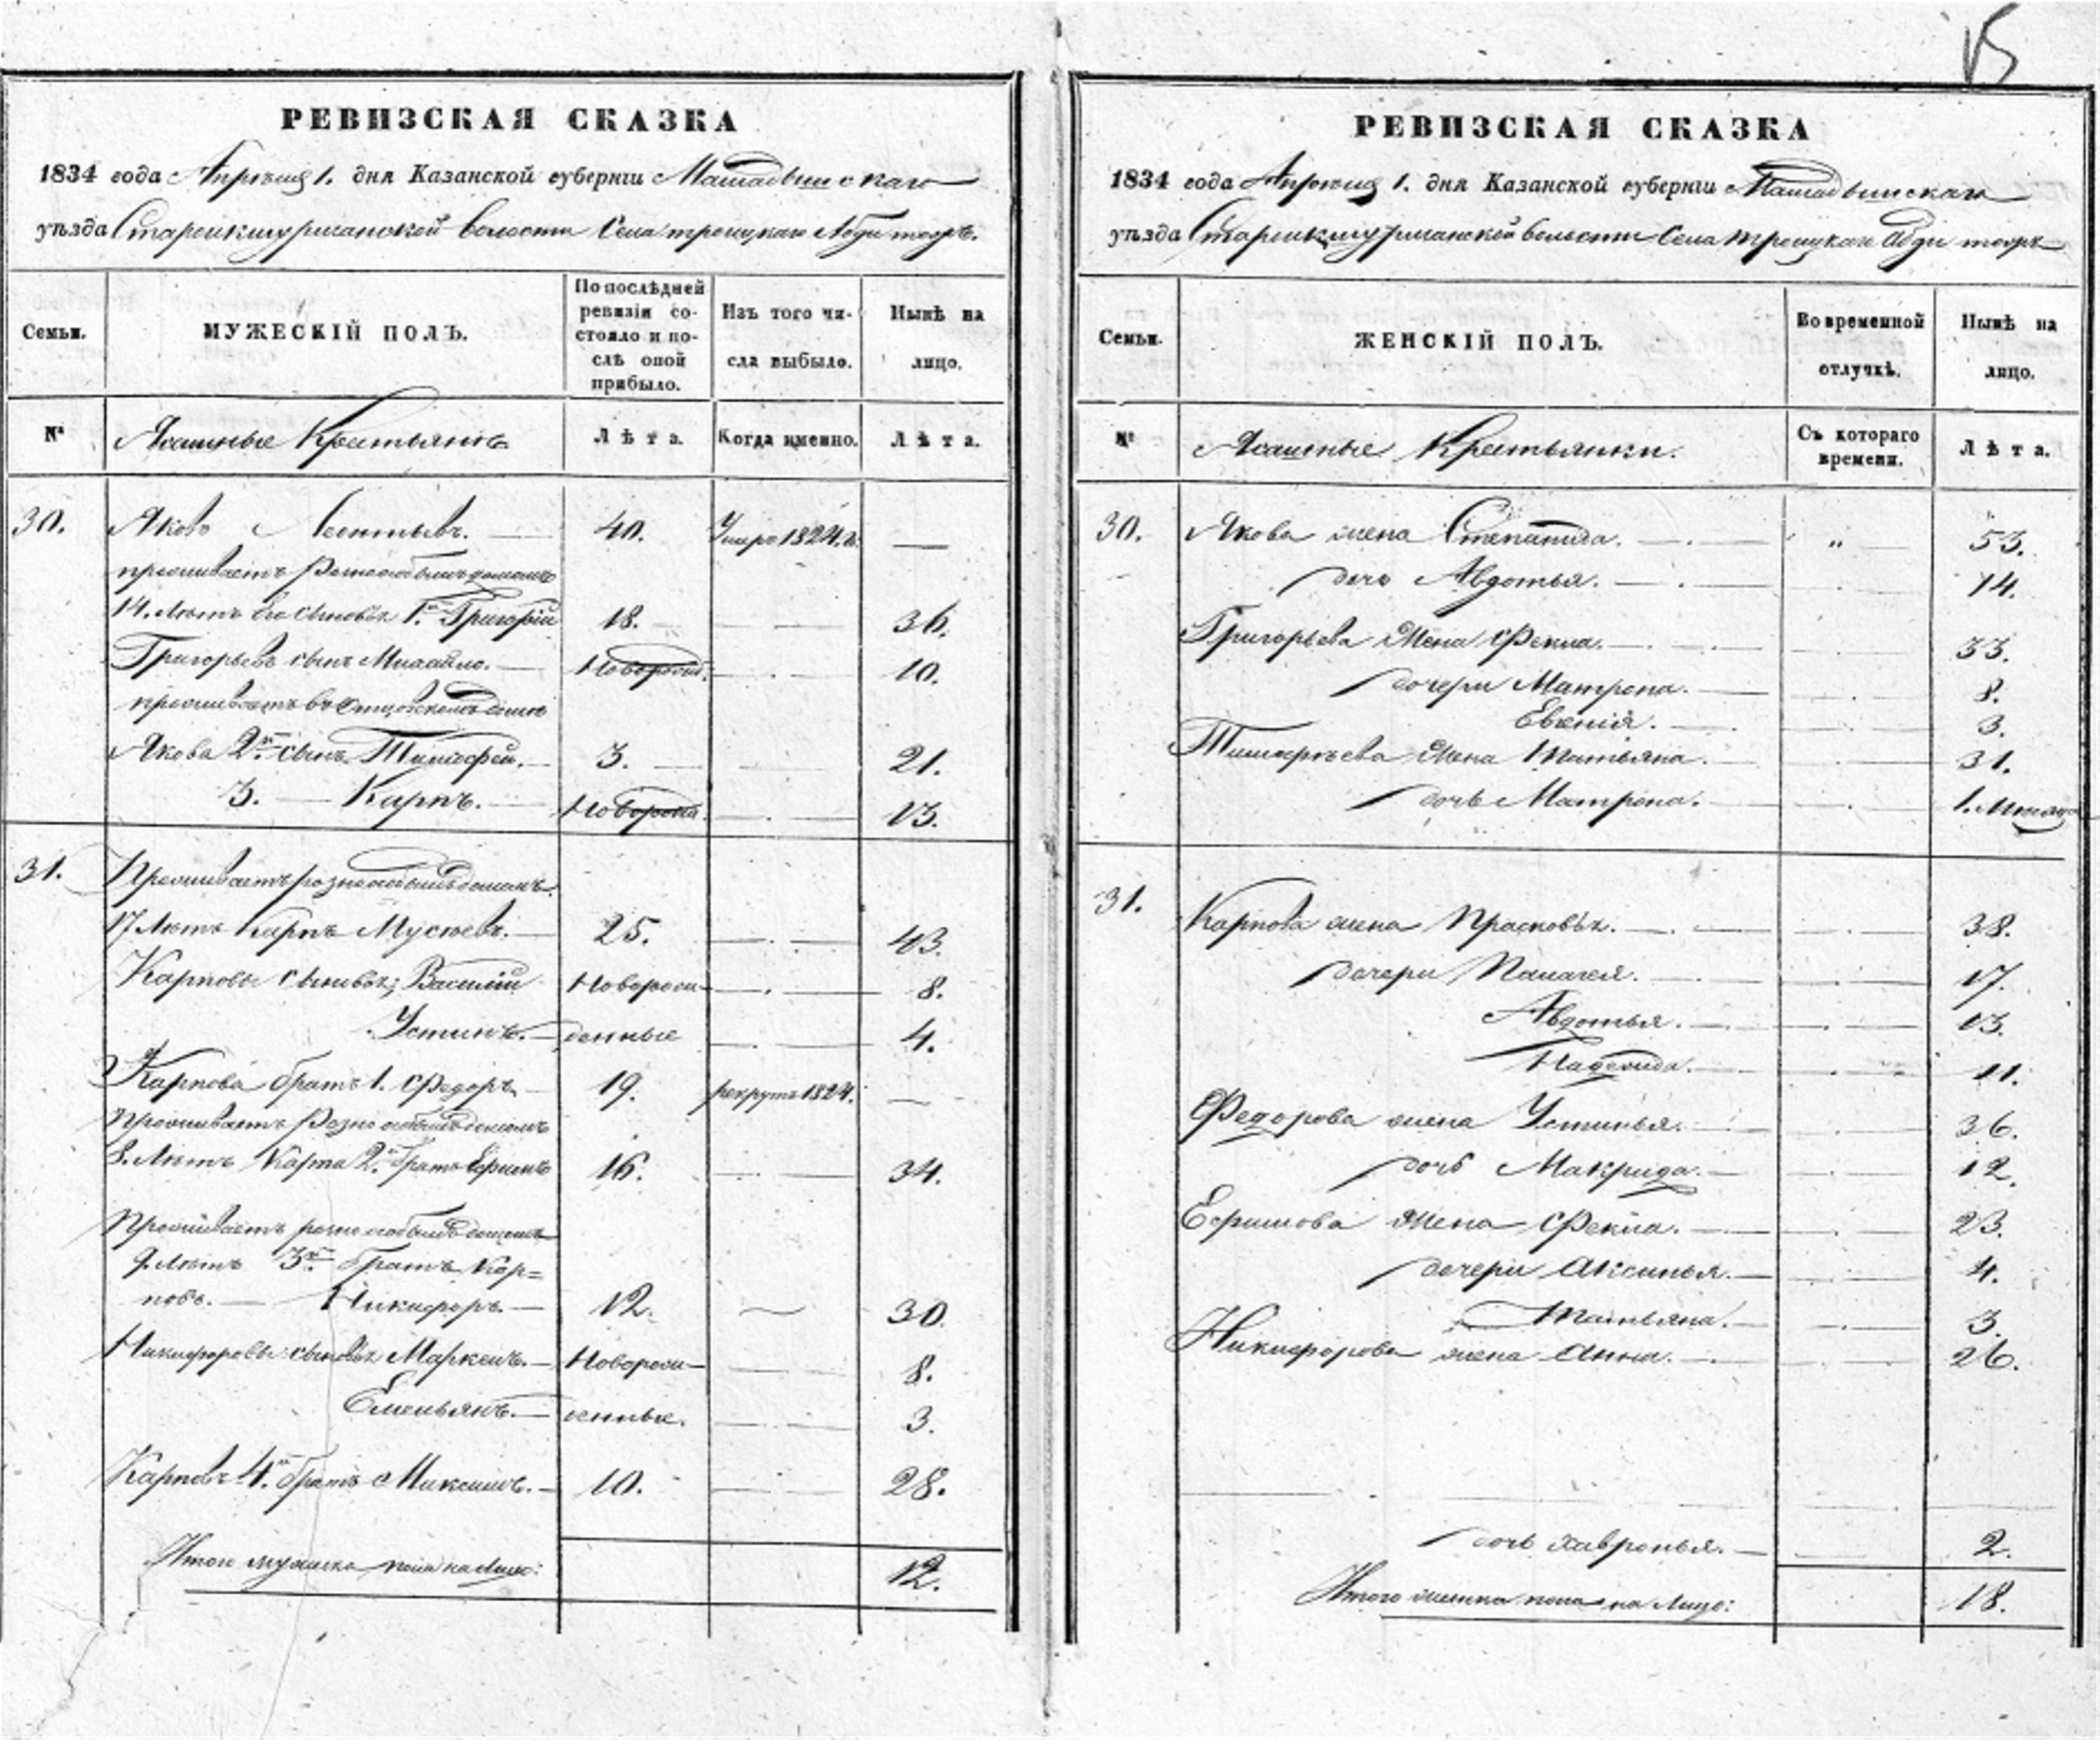 15
РЕВИЗСКАЯ СКАЗКА
1834 года Апрѣля 1. дня Казанской губерніи Мамадышскаго
уѣзда волости Села троицкаго
Семьи.
МУЖЕСКІЙ ПОЛЪ.
По послѣдней ревизіи со-
стояло и по-
слѣ оной
прибыло.
Изъ того чи-
сла выбыло.
Нынѣ на
лицо.
№
Ясашные Крестьяне
Лѣта.
Когда именно.
Лѣта.
30. Яковъ Леонтьевъ. — 40. Умеръ 1824.г. —
проживаетъ домомъ
14. Лѣтъ Его сыновья 1.й Григорій 18. — 36.
Григорьевъ сынъ Михайло. — Новорож. — 10.
проживаетъ въ Отцовскомъ домѣ
Якова 2й. сынъ Тимофей. — 3. — 21.
3. — Карпъ. — Новорож. — 13.
31. Проживаетъ розно особымъ домомъ
17 Лѣтъ Карпъ Мусѣевъ. — 25. — 43.
Карповы сыновья; Василій Новорож- — 8.
Устинъ. — денные — 4.
Карпова братъ 1. Федоръ — 19. рекрутъ 1824. —
Проживаетъ Розно особымъ домомъ
8. Лѣтъ Карпа 2.й братъ Ефимъ 16. — 34.
Проживаетъ розно особымъ домомъ
9. лѣтъ 3й. братъ Кар=
повъ. — Никифоръ. — 12. — 30.
Никифоровы сыновья Маркелъ. — Новорож— — 8.
Емельянъ. — денные. — 3.
Карповъ 4.й братъ Максимъ. — 10. — 28.
Итого мужеска пола на лицо: 12.
РЕВИЗСКАЯ СКАЗКА
1834 года Апрѣля 1. дня Казанской губерніи Мамадышскаго
уѣзда волости Села троицкаго
Семьи.
ЖЕНСКІЙ ПОЛЪ.
Во временной
отлучкѣ.
Нынѣ на
лицо.
№
Ясашные Крестьянки.
Съ котораго
времени.
Лѣта.
30. Якова жена Степанида. — „ — 53.
дочь Авдотья. — 14.
Григорьева Жена Фекла. — 33.
дочери Матрона. — 8.
Евгенія. — 3.
Тимофѣева Жена Татьяна. — 31.
дочь Матрона. — 1.
31. Карпова жена Прасковья. — 38.
дочери Палагея. — 17.
Авдотья. — 13.
Надежда. — 11.
Федорова жена Устинья. — 36.
дочь Макрида. — 12.
Ефимова Жена Фекла. — 23.
дочери Аксинья. — 4.
Татьяна. — 3.
Никифорова жена Анна. — 26.
дочь Хавронья. — 2.
Итого женска пола на лицо: 18.